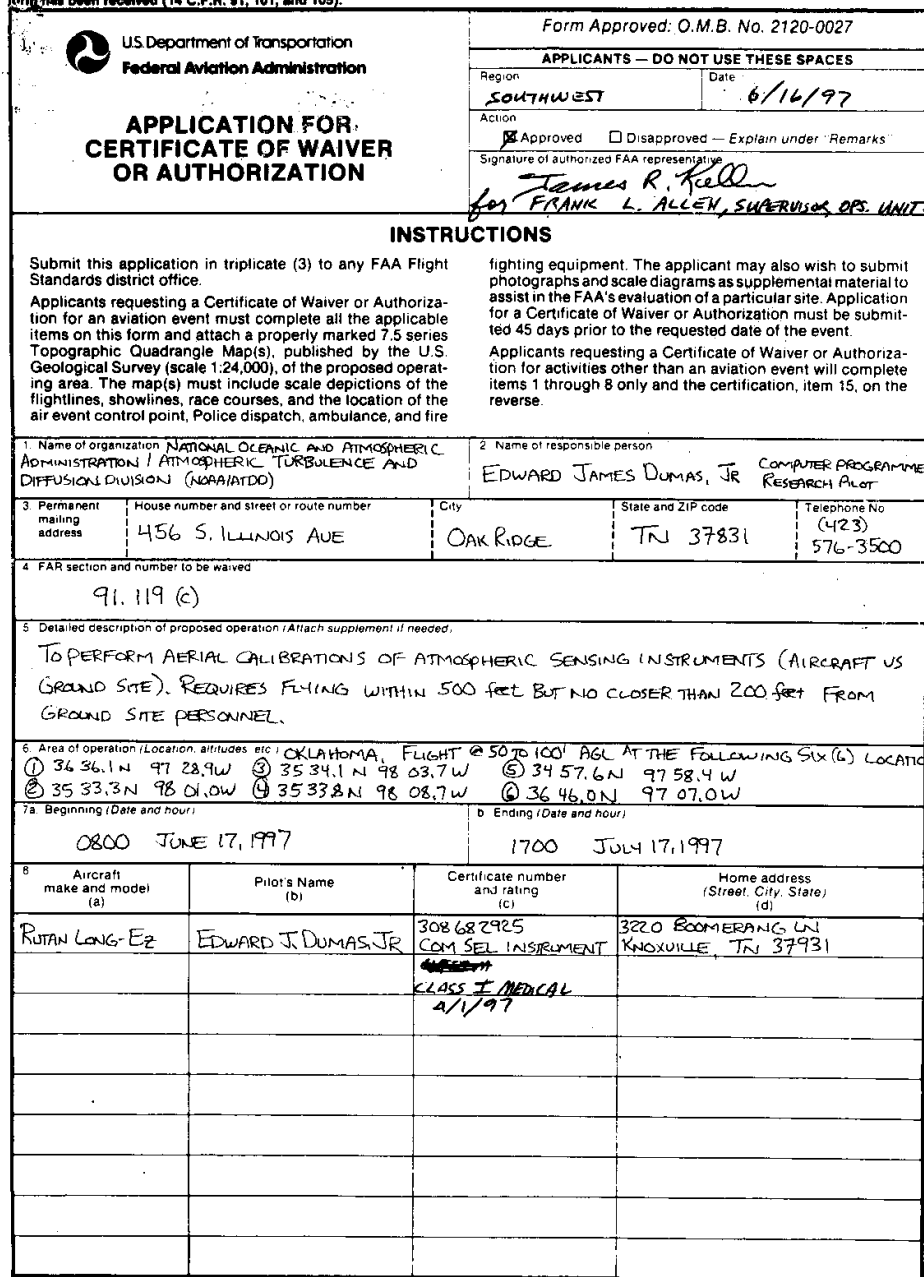 form has been received (14 C.F.R. 91, 101, and 105).
U.S. Department of Transportation
Federal Aviation Administration
APPLICATION FOR
CERTIFICATE OF WAIVER
OR AUTHORIZATION
Form Approved: O.M.B. No. 2120-0027
APPLICANTS — DO NOT USE THESE SPACES
Region
SOUTHWEST
Date
6/16/97
Action
Approved
Disapproved — Explain under "Remarks"
Signature of authorized FAA representative
James R. Keller
for FRANK L. ALLEN, SUPERVISOR OPS. UNIT
INSTRUCTIONS
Submit this application in triplicate (3) to any FAA Flight
Standards district office.
Applicants requesting a Certificate of Waiver or Authoriza-
tion for an aviation event must complete all the applicable
items on this form and attach a properly marked 7.5 series
Topographic Quadrangle Map(s), published by the U.S.
Geological Survey (scale 1:24,000), of the proposed operat-
ing area. The map(s) must include scale depictions of the
flightlines, showlines, race courses, and the location of the
air event control point, Police dispatch, ambulance, and fire
fighting equipment. The applicant may also wish to submit
photographs and scale diagrams as supplemental material to
assist in the FAA's evaluation of a particular site. Application
for a Certificate of Waiver or Authorization must be submit-
ted 45 days prior to the requested date of the event.
Applicants requesting a Certificate of Waiver or Authoriza-
tion for activities other than an aviation event will complete
items 1 through 8 only and the certification, item 15, on the
reverse.
1. Name of organization NATIONAL OCEANIC AND ATMOSPHERIC
ADMINISTRATION / ATMOSPHERIC TURBULENCE AND
DIFFUSION DIVISION (NOAA/ATDD)
2. Name of responsible person
EDWARD JAMES DUMAS, JR COMPUTER PROGRAMME
RESEARCH PILOT
3. Permanent
mailing
address
House number and street or route number
456 S. ILLINOIS AVE
City
OAK RIDGE
State and ZIP code
TN 37831
Telephone No
(423)
576-3500
4 FAR section and number to be waived
91.119 (c)
5 Detailed description of proposed operation (Attach supplement if needed)
TO PERFORM AERIAL CALIBRATIONS OF ATMOSPHERIC SENSING INSTRUMENTS (AIRCRAFT VS
GROUND SITE). REQUIRES FLYING WITHIN 500 feet BUT NO CLOSER THAN 200 feet FROM
GROUND SITE PERSONNEL.
6. Area of operation (Location, altitudes etc) OKLAHOMA, FLIGHT @ 50 TO 100' AGL AT THE FOLLOWING SIX (6) LOCATIO
① 36 36.1 N 97 28.9W ③ 35 34.1 N 98 03.7 W ⑤ 34 57.6N 97 58.4 W
② 35 33.3N 98 01.0W ④ 35 33.8N 98 08.7W ⑥ 36 46.0N 97 07.0W
7a. Beginning (Date and hour)
0800 JUNE 17, 1997
b Ending (Date and hour)
1700 JULY 17, 1997
8 Aircraft
make and model
(a)
Pilot's Name
(b)
Certificate number
and rating
(c)
Home address
(Street, City, State)
(d)
RUTAN LONG-EZ
EDWARD J. DUMAS, JR
308682925
COM SEL INSTRUMENT
CLASS I MEDICAL
4/1/97
3220 BOOMERANG LN
KNOXVILLE, TN 37931